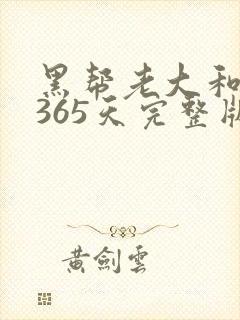 黑帮老大和
365天完整版
黄剑云